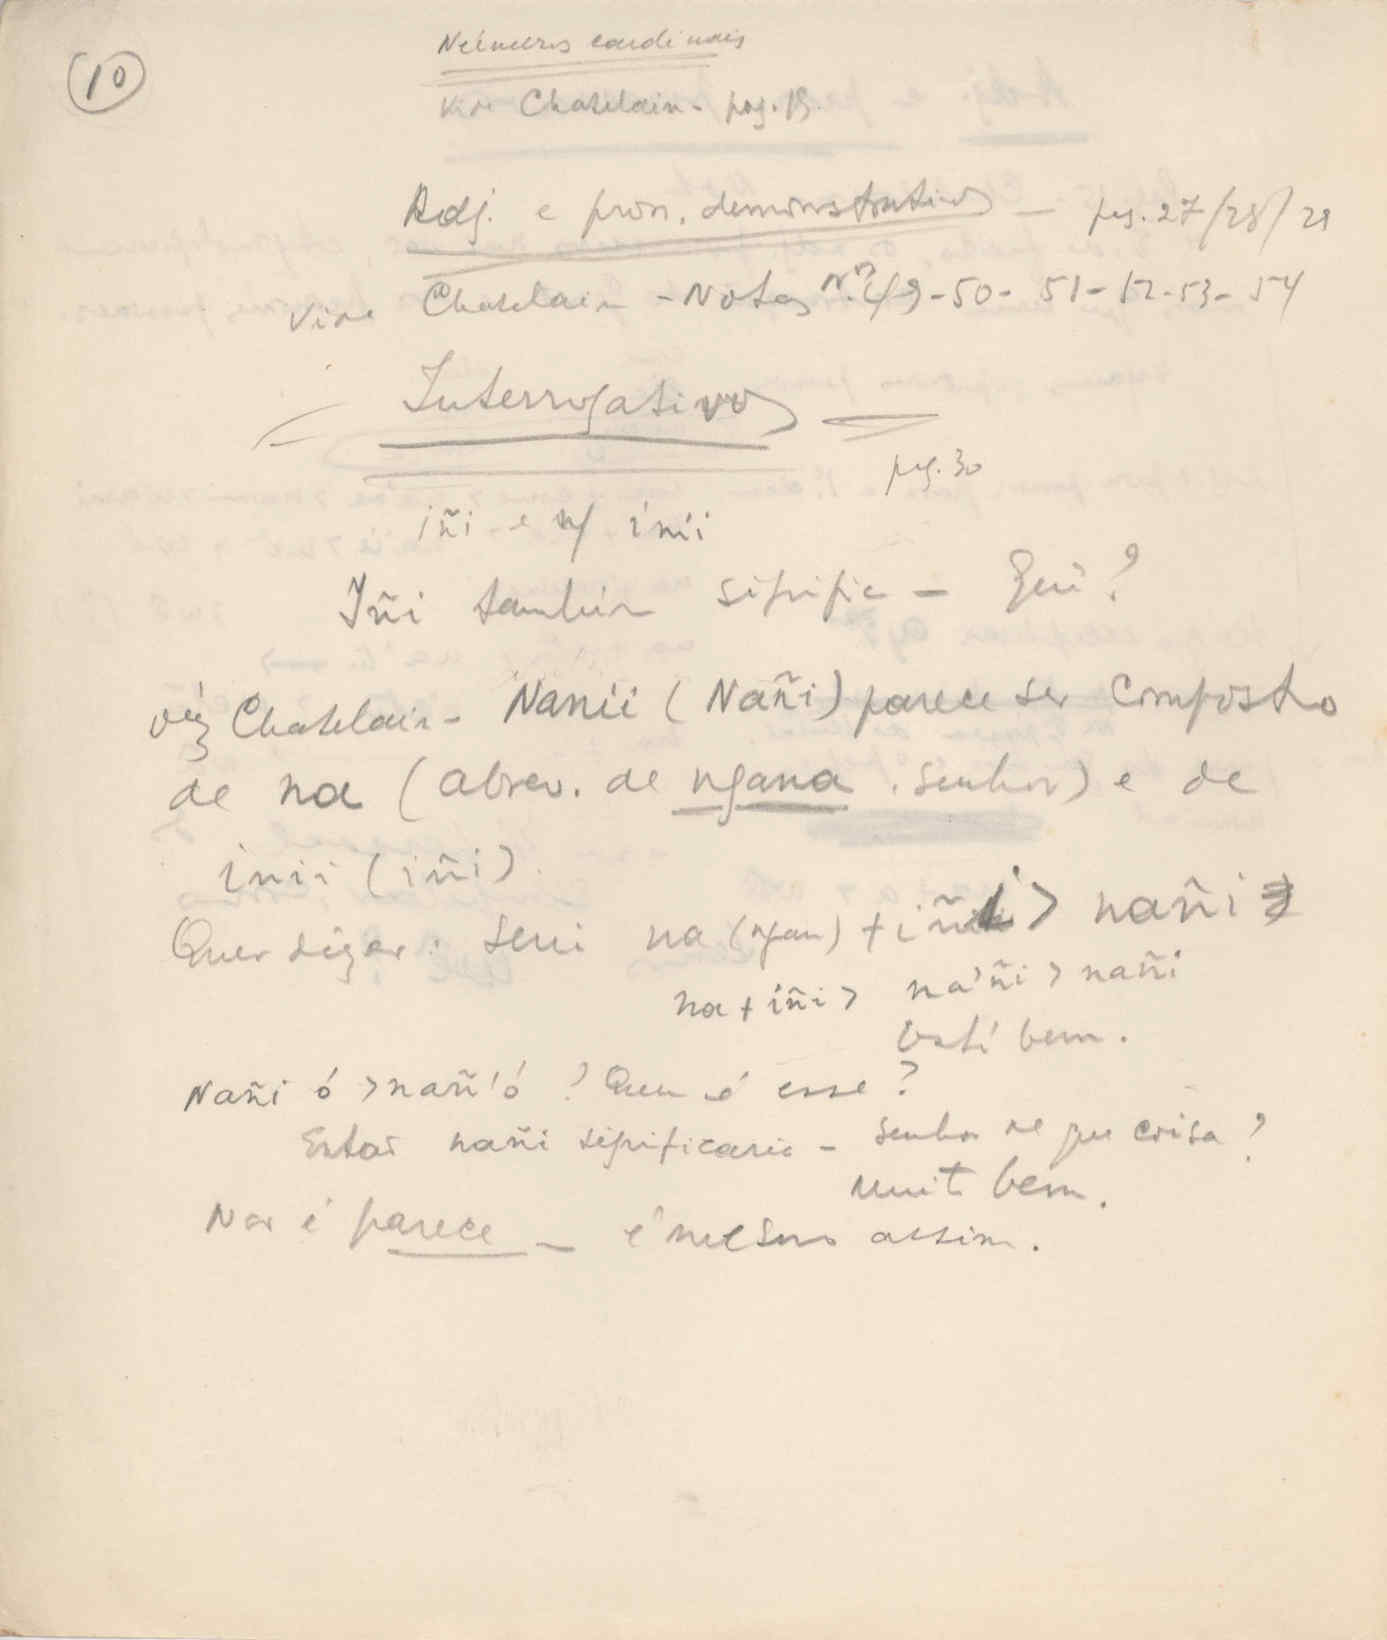 10
Números cardinais
Vide Chatelain - pag. 19.
Adj. e pron. demonstrativos — pag. 27/28/29
Vide Chatelain - Notas Nº 49-50- 51-52-53- 54
Interrogativos
pag. 30
iñi e inii
Iñi também signific — Que?
Chatelain - Nanii (Nañi) parece ser composto
de na (abrev. de ngana . senhor) e de
inii (iñi).
Quer dizer: seri na (ngan) + iñi > nañi
na + iñi > na'ñi > nañi
Está bem.
Nañi ó > nañ'ó ? Quem é esse?
Então nañi significaria - senhor de que coisa?
Muito bem.
Não é parece — é mesmo assim.